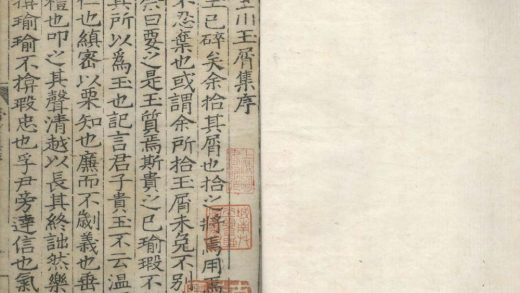 玉川玉屑集序
玉已碎矣余拾其屑也拾之將焉用焉
不忍棄也或謂余所拾玉屑未免不別
然曰要之是玉質焉斯貴之已瑜瑕不
其所以為玉也記言君子貴玉不云温
仁也縝密以栗知也廉而不劌義也垂
禮也叩之其聲清越以長其終詘然樂
揜瑜瑜不揜瑕忠也孚尹旁達信也氣